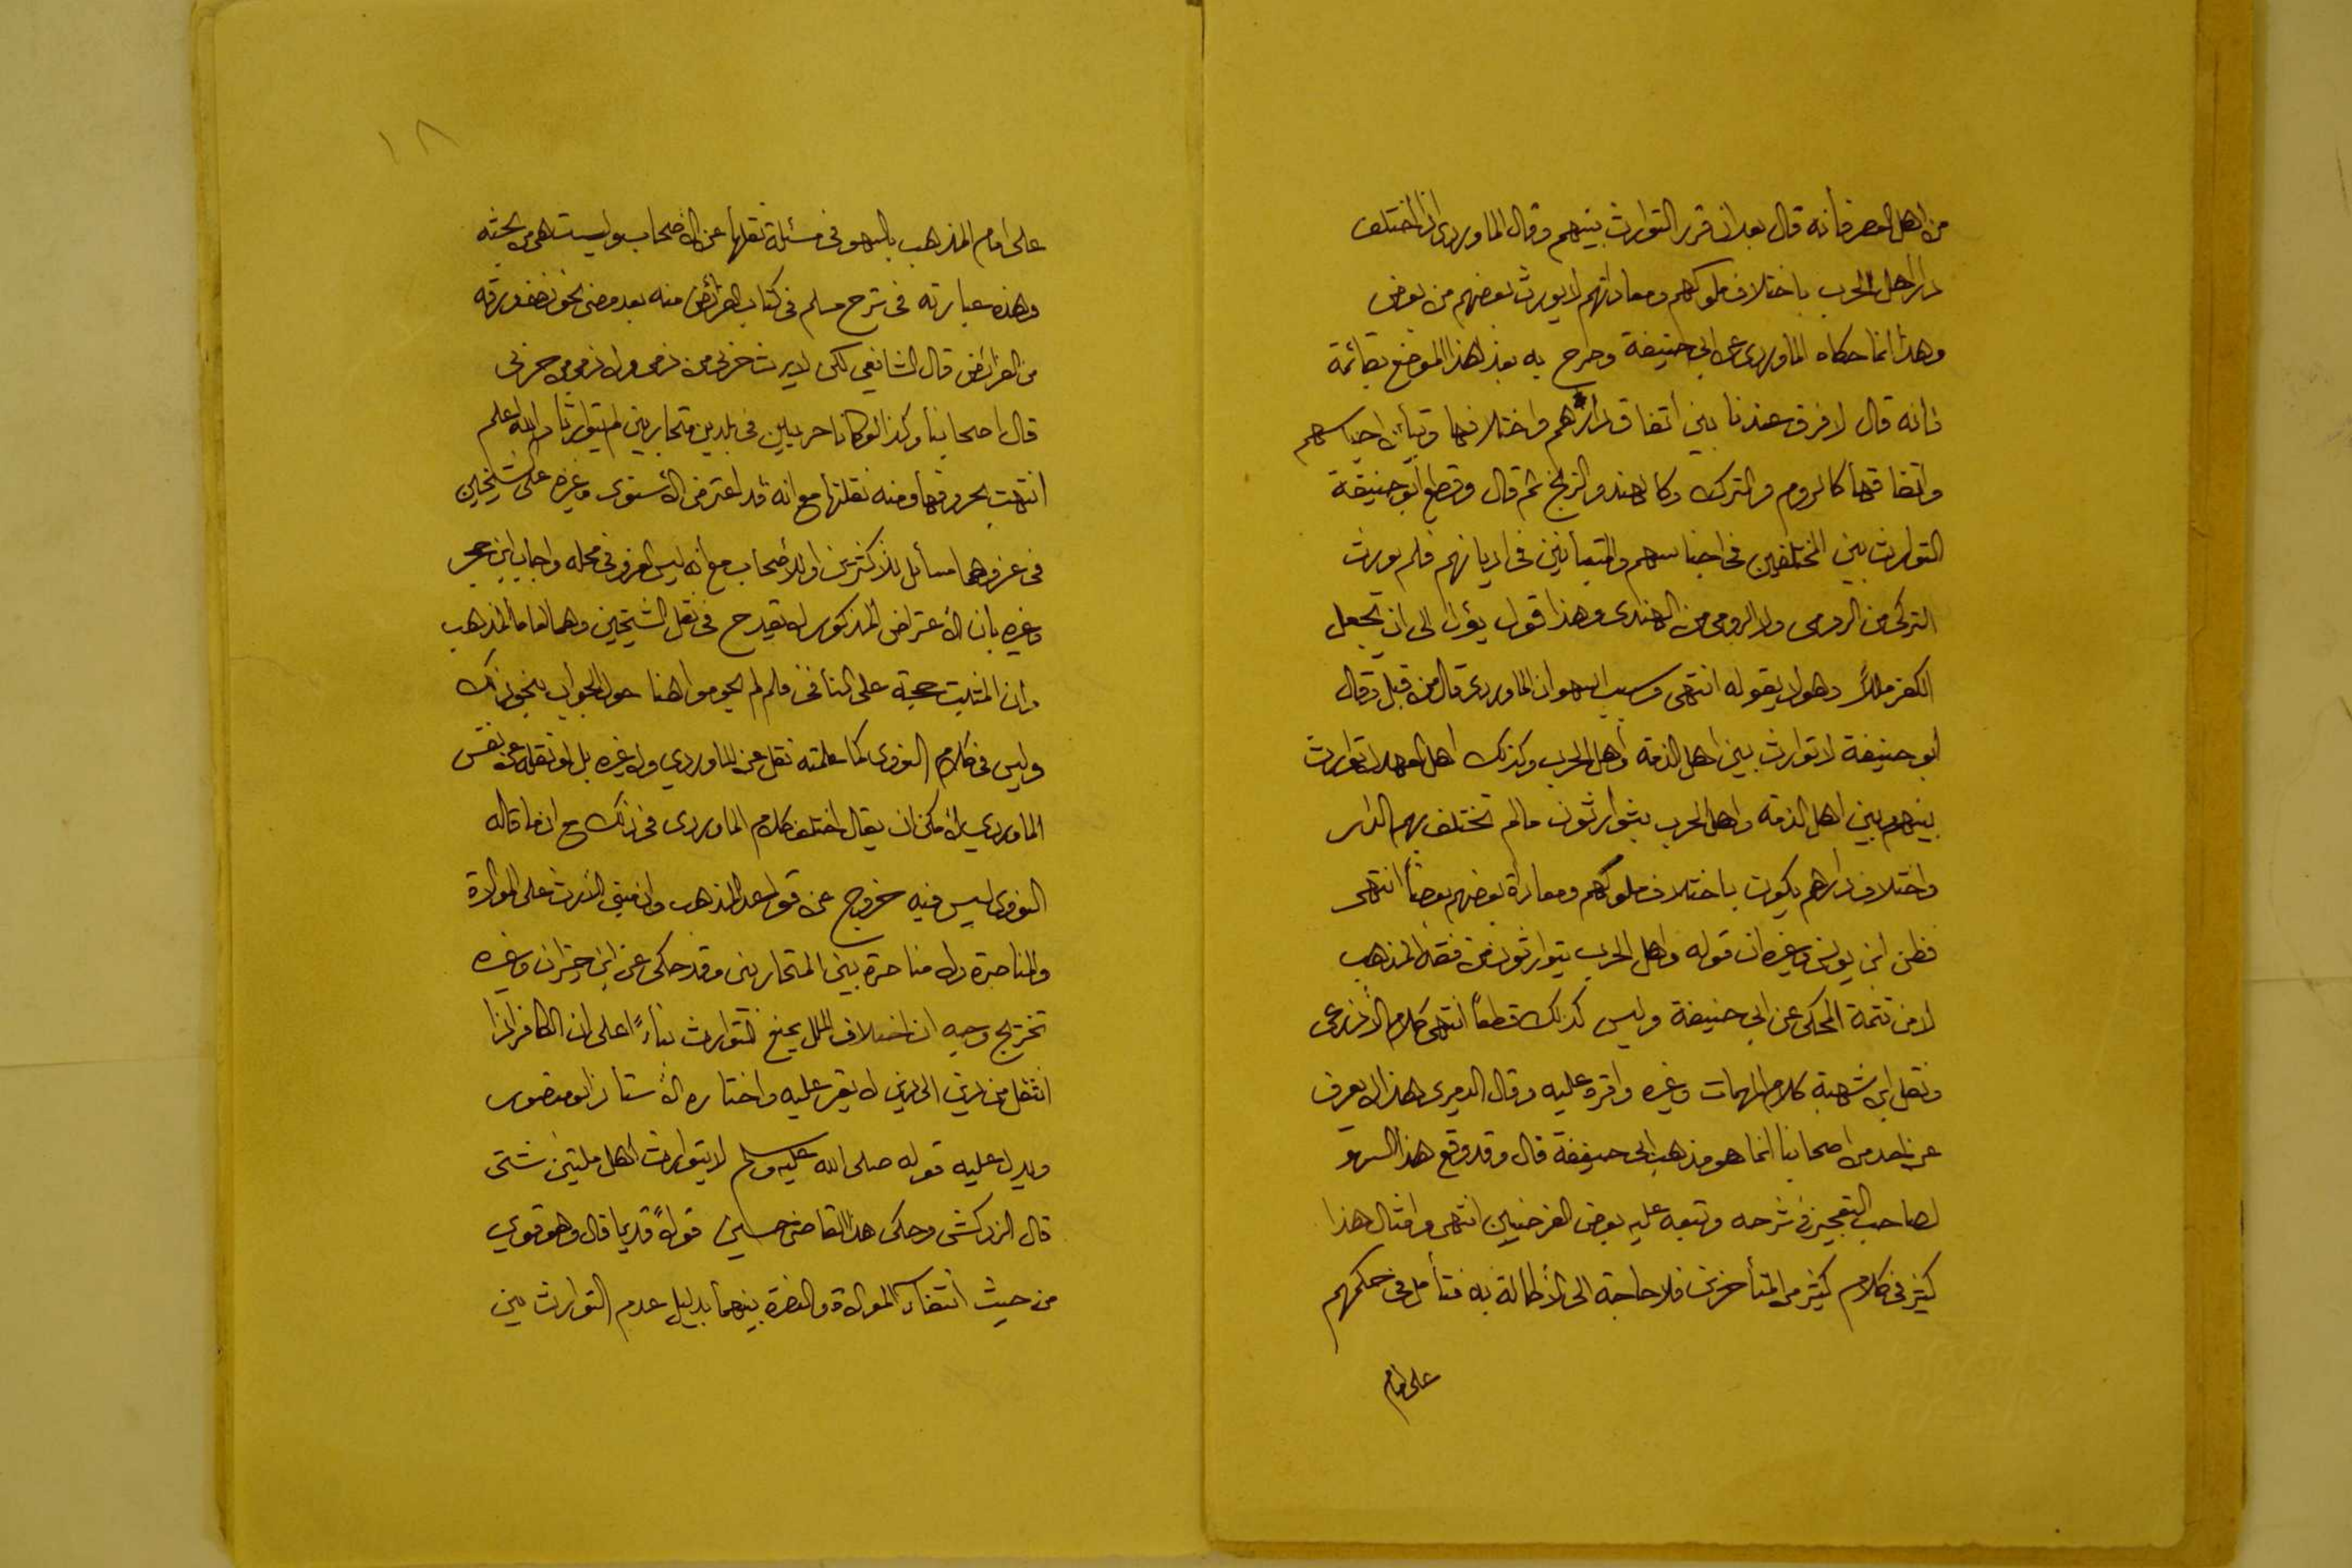 من اهل العصر فأنه قال بعد ان قرر التوارث بينهم وقال الماوردي اذا اختلف
دار اهل الحرب باختلاف ملوكهم ومعاداتهم لا يورث بعضهم من بعض
وهذا انما حكاه الماوردي عن ابي حنيفة وصرح به بعد هذا الموضع بقائمة
فانه قال لا فرق عندنا بين اتفاق دارهم واختلافها وتباين اجناسهم
واتفاقها كالروم والترك وكالهند والزنج ثم قال وقطع ابو حنيفة
التوارث بين المختلفين في اجناسهم والمتباينين في اديانهم فلم يورث
التركي من الرومي ولا الرومي من الهندي وهذا قول يؤل الى ان يجعل
الكفر مللاً وهو لا يقوله انتهى وسبب السهو ان الماوردي قال من قبل وقال
ابو حنيفة لا توارث بين اهل الذمة وأهل الحرب وكذلك اهل العهد لا توارث
بينهم وبين اهل الذمة واهل الحرب يتوارثون مالم تختلف بهم الدار
واختلاف دارهم يكون باختلاف ملوكهم ومعاداة بعضهم بعضاً انتهى
فظن ابن يونس وغيره ان قوله واهل الحرب يتوارثون من فقه المذهب
لا من تتمة المحكي عن ابي حنيفة وليس كذلك قطعاً انتهى كلام الأذرعي
ونقل ابن شهبة كلام المهمات وغيره واقره عليه وقال الدميري هذا لا يعرف
عن احد من اصحابنا انما هو مذهب ابي حنيفة قال وقد وقع هذا السهو
لصاحب التعجيز في شرحه وتبعه عليه بعض الفرضيين انتهى وامثال هذا
كثير في كلام كثير من المتأخرين فلا حاجة الى الأطالة به فتأمل في حكمهم
على امام
١٨
على امام المذهب بالسهو في مسئلة نقلها عن الأصحاب وليست هي من بحثه
وهذه عبارته في شرح مسلم في كتاب الفرائض منه بعد مضي نحو نصف ورقه
من الفرائض قال الشافعي لكن لا يرث حربي من ذمي ولا ذمي من حربي
قال اصحابنا وكذا لو كانا حربيين في بلدين متحاربين لم يتوارثا والله اعلم
انتهت بحروفها ومنه نقلتها مع انه قد اعترض الأسنوي وغيره على الشيخين
في عزوهما مسائل للأكثرين او للأصحاب مع أنه ليس العزو في محله واجاب ابن حجر
وغيره بأن الأعتراض المذكور لا يقدح في نقل الشيخين وهما اماما المذهب
وان المثبت حجة على النافي فلم لم يحوموا هنا حول الجواب بنحو ذلك
وليس في كلام النووي كما علمته نقل عن الماوردي ولا غيره بل لو نقله عن نفس
الماوردي لأمكن ان يقال اختلف كلام الماوردي في ذلك مع ان ما قاله
النووي ليس فيه خروج عن قواعد المذهب وان مبنى الأرث على الموالاة
والمناصرة ولا مناصرة بين المتحاربين وقد حكى عن ابن خيران وغيره
تخريج وجه ان اختلاف الملل يمنع التوارث بناءً اعلى ان الكافر اذا
انتقل من دين الى دين لا يقر عليه واختاره الأستاذ ابو منصور
ويدل عليه قوله صلى الله عليه وسلم لا يتوارث اهل ملتين شتى
قال الزركشي وحكى هذا القاضي حسين قولاً قديما قال وهو قوي
من حيث انتفاء الموالاة والنصرة بينهما بدليل عدم التوارث بين